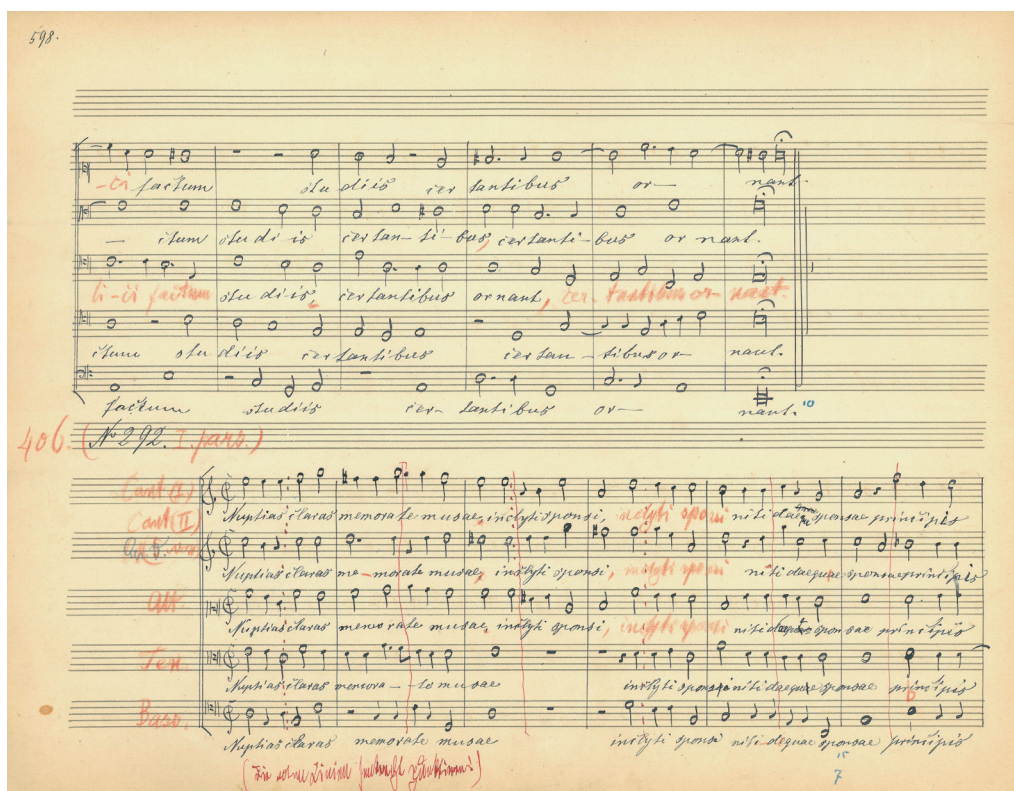 598.
-ci factum studiis certantibus or— nant.
— ctum studiis certan-ti-bus, certanti-bus ornant.
li-ci factum studiis, certantibus ornant, cer-tantibus or-nant.
ctum studiis certantibus certan-tibus or- nant.
factum studiis cer-tantibus or— nant. 10
406. (№ 292. I. pars.)
Cant (I)
Nuptias claras memorate musae, inclyti sponsi, inclyti sponsi nitidaeque sponsae principis
Cant (II)
Nuptias claras me-morate musae, inclyti sponsi, inclyti sponsi nitidaeque sponsae principis
Alt.
Nuptias claras memorate musae, inclyti sponsi, inclyti sponsi nitidaeque sponsae principis
Ten.
Nuptias claras memora--te musae inclyti sponsi nitidaeque sponsae principis
Bass.
Nuptias claras memorate musae inclyti sponsi nitidaeque sponsae principis
15
7